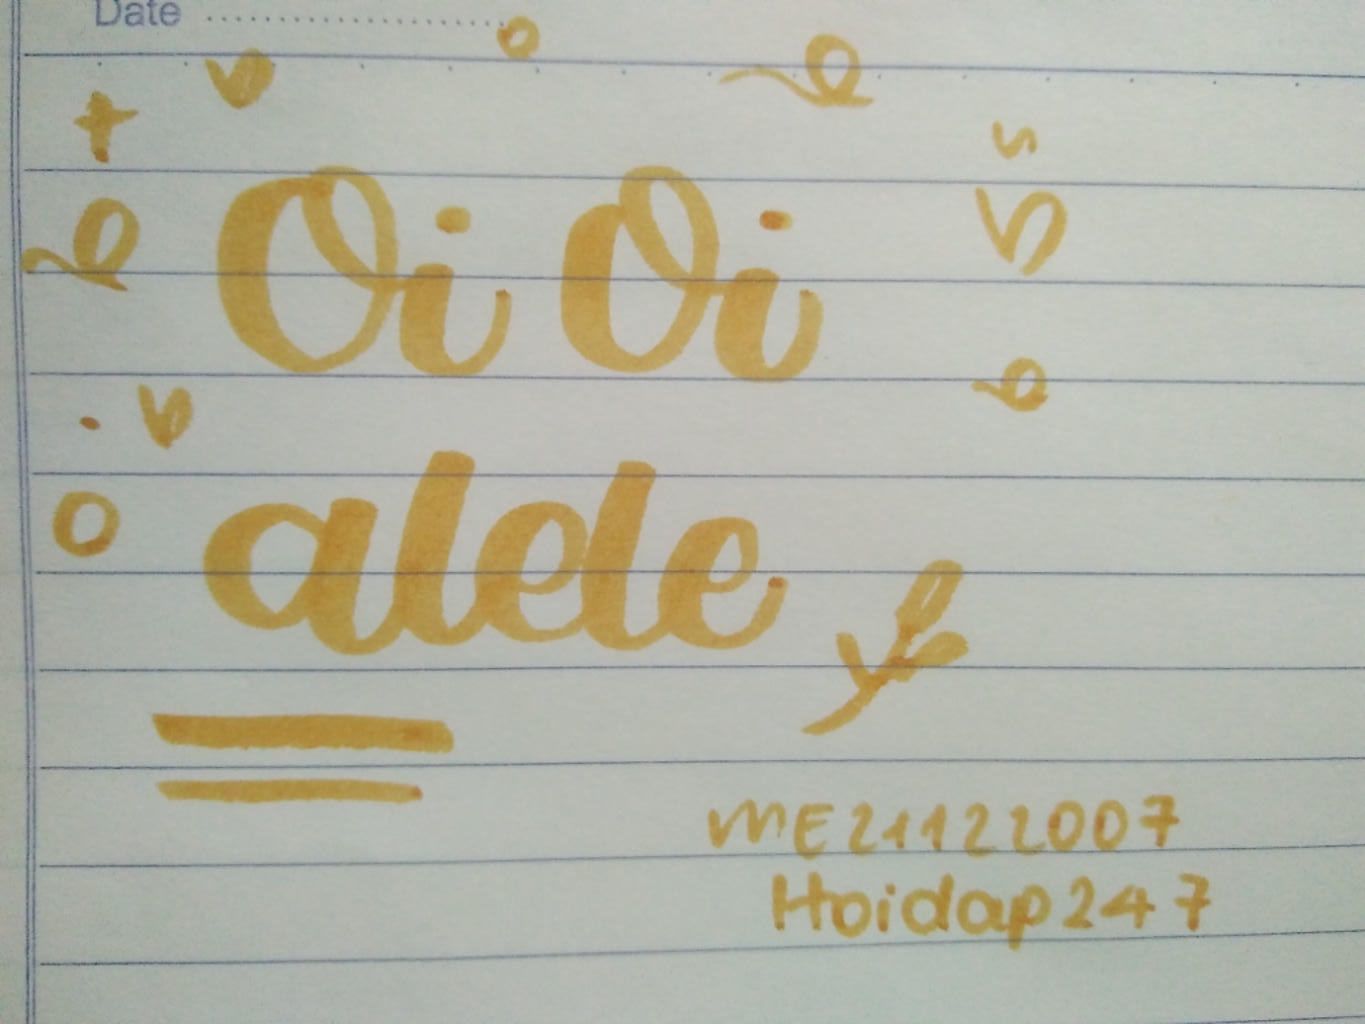 Date
Oi Oi
alele
ME21122007
Hoidap247